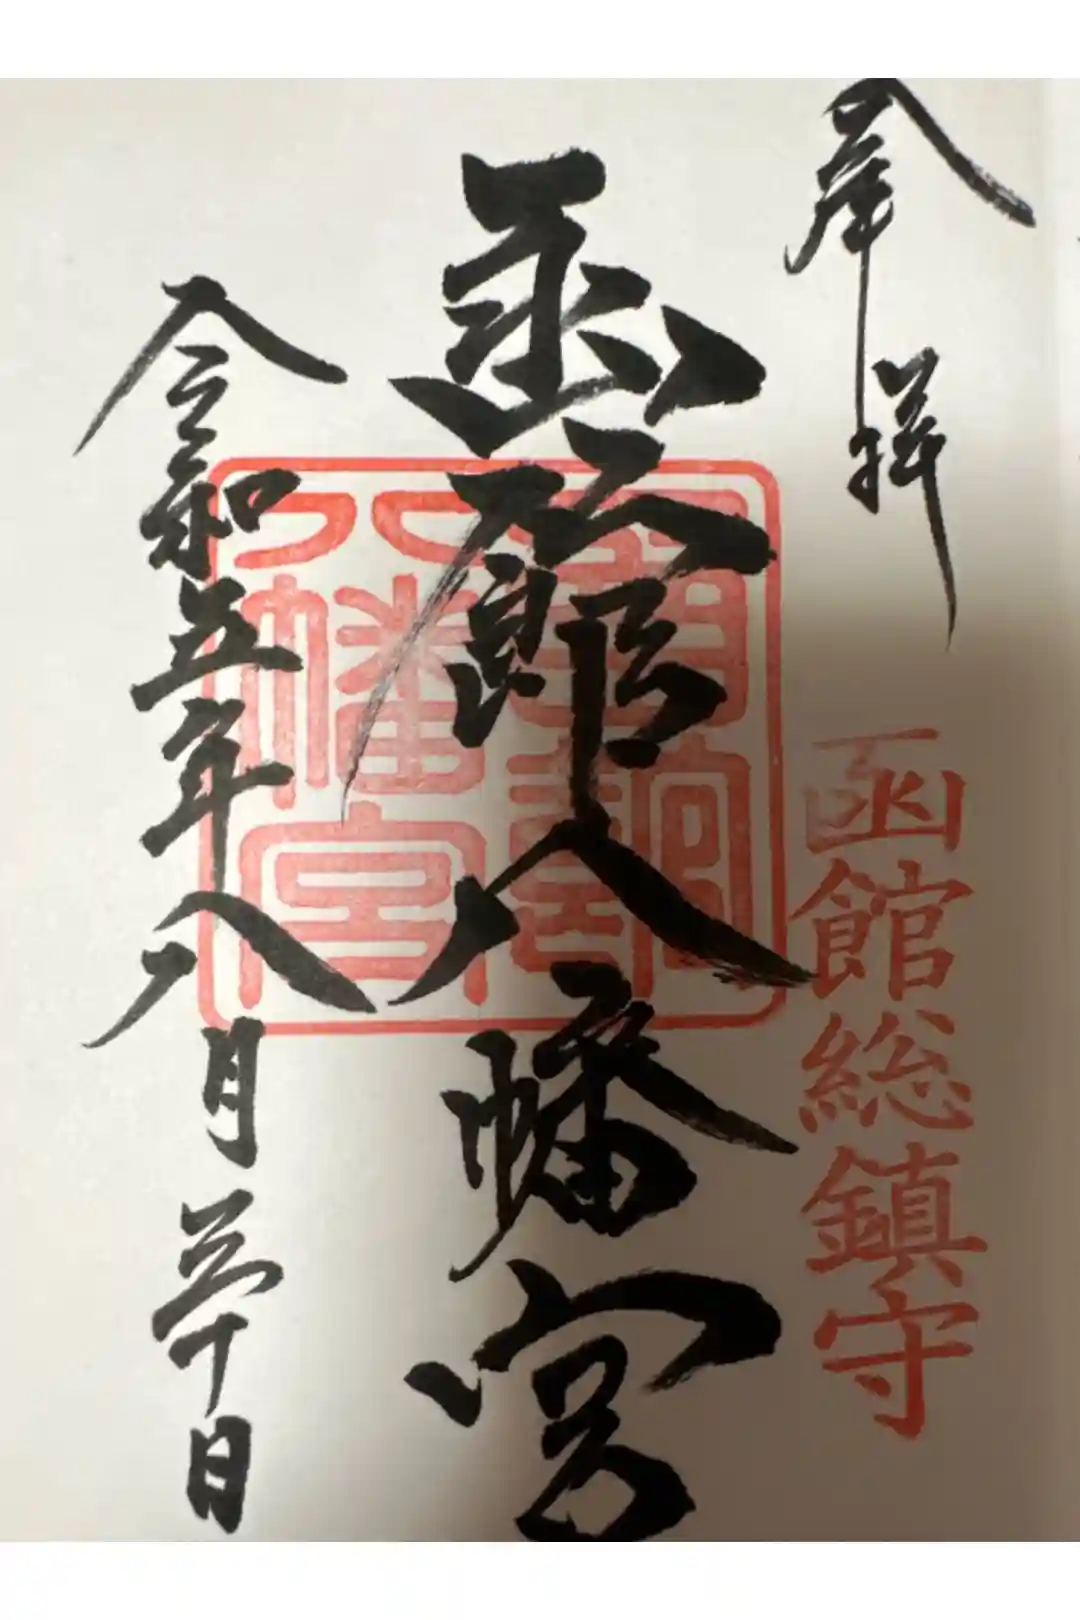 奉拝
函館総鎮守
函館八幡宮
八幡宮
令和五年八月三十日